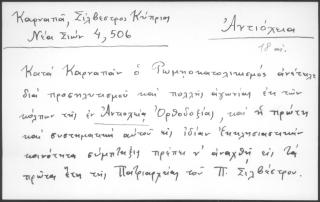 Καρναπᾶ, Σίλβεστρος Κύπριος
Νέα Σιών 4, 506
Ἀντιόχεια
18 αἰ.
Κατὰ Καρναπᾶν ὁ Ρωμηοκαθολικισμὸς ἀνέτειλε
διὰ προσηλυτισμοῦ καὶ πολλῆς ἀγωνίας ἐκ τῶν
κόλπων τῆς ἐν Ἀντιοχείᾳ Ὀρθοδοξίας, καὶ ἡ πρώτη
καὶ συστηματικὴ αὐτοῦ εἰς ἰδίαν Ἐκκλησιαστικὴν
κοινότητα σύμπηξις πρέπει ν' ἀναχθῇ εἰς τὰ
πρῶτα ἔτη τῆς Πατριαρχείας τοῦ Π. Σιλβέστρου.